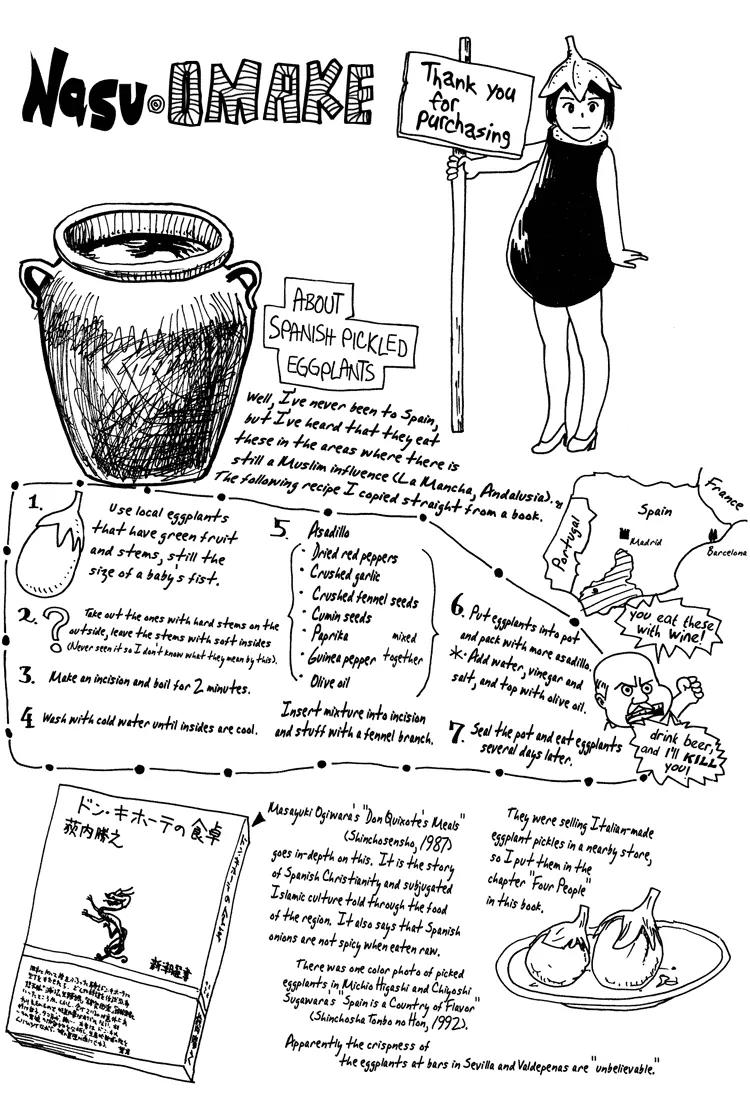 Nasu OMAKE
Thank you
for
purchasing
ABOUT
SPANISH PICKLED
EGGPLANTS
Well, I've never been to Spain,
but I've heard that they eat
these in the areas where there is
still a Muslim influence (La Mancha, Andalusia).
The following recipe I copied straight from a book.
1.
Use local eggplants
that have green fruit
and stems, still the
size of a baby's fist.
2. ?
Take out the ones with hard stems on the
outside, leave the stems with soft insides
(Never seen it so I don't know what they mean by this).
3. Make an incision and boil for 2 minutes.
4 Wash with cold water until insides are cool.
5. Asadillo
· Dried red peppers
· Crushed garlic
· Crushed fennel seeds
· Cumin seeds
· Paprika
· Guinea pepper
· Olive oil
mixed
together
Insert mixture into incision
and stuff with a fennel branch.
6. Put eggplants into pot
and pack with more asadillo.
* Add water, vinegar and
salt, and top with olive oil.
7. Seal the pot and eat eggplants
several days later.
France
Spain
Portugal
Madrid
Barcelona
you eat these
with wine!
drink beer,
and I'll KILL
you!
ドン・キホーテの食卓
荻内勝之
新潮選書
Masayuki Ogiwara's "Don Quixote's Meals"
(Shinchosensho, 1987)
goes in-depth on this. It is the story
of Spanish Christianity and subjugated
Islamic culture told through the food
of the region. It also says that Spanish
onions are not spicy when eaten raw.
There was one color photo of picked
eggplants in Michio Higashi and Chiyoshi
Sugawara's "Spain is a Country of Flavor"
(Shinchosha Tonbo no Hon, 1992).
Apparently the crispness of
the eggplants at bars in Sevilla and Valdepenas are "unbelievable."
They were selling Italian-made
eggplant pickles in a nearby store,
so I put them in the
chapter "Four People"
in this book.